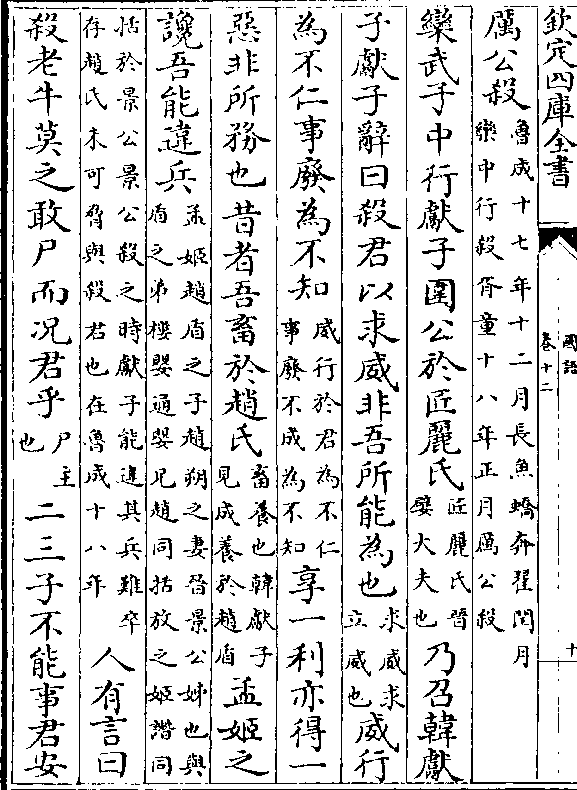 欽定四庫全書
國語
卷十二
十
厲公殺魯成十七年十二月長魚蟜奔翟閏月
欒中行殺胥童十八年正月厲公殺
欒武子中行獻子圍公於匠麗氏匠麗氏晉
嬖大夫也
乃召韓獻
子獻子辭曰殺君以求威非吾所能為也求威求
立威也
威行
為不仁事廢為不知威行於君為不仁
事廢不成為不知
享一利亦得一
惡非所務也昔者吾畜於趙氏畜養也韓獻子
見成養於趙盾
孟姬之
讒吾能違兵孟姬趙盾之子趙朔之妻晉景公姊也與
盾之弟樓嬰通嬰兄趙同括放之姬譖同
括於景公景公殺之時獻子能違其兵難卒
存趙氏未可脅與殺君也在魯成十八年
人有言曰
殺老牛莫之敢尸而况君乎尸主
也
二三子不能事君安